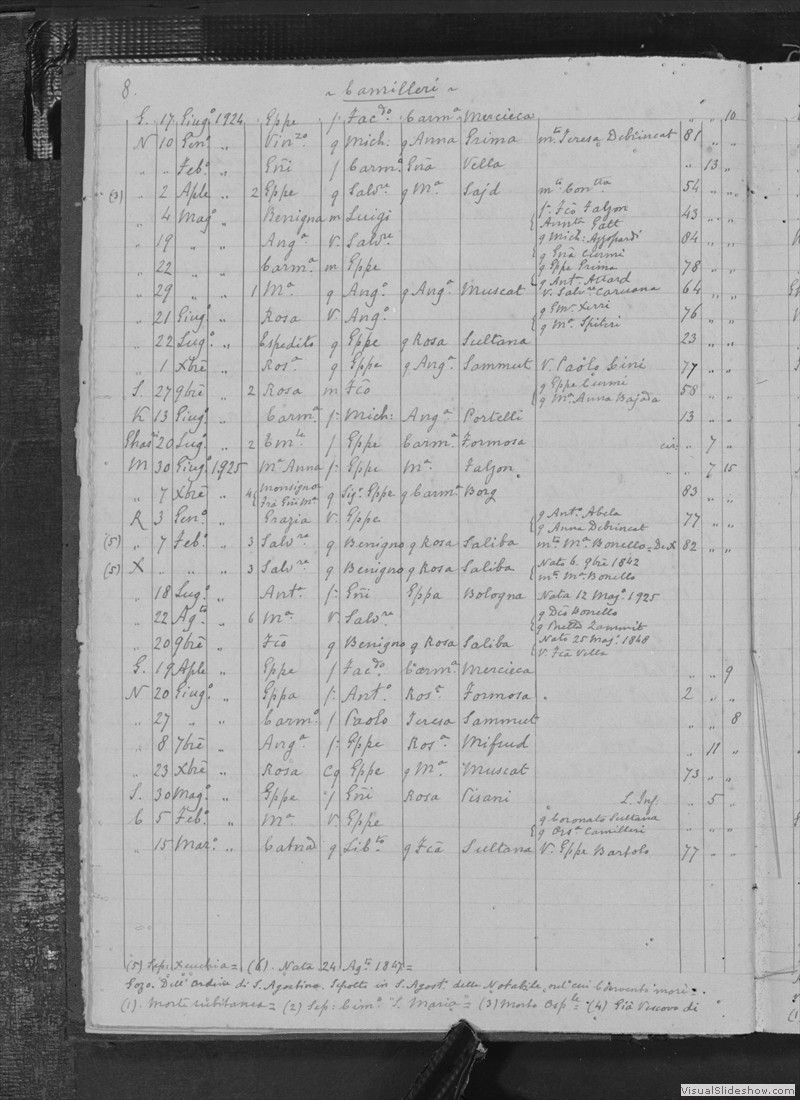 8. ~ Camilleri ~
G. 17 Giugº 1924 Gppe f. Zacdº Carmª Mercieca " " 10
N 10 Genº " Vinzº q Mich: q Anna Grima mte Teresa Debrincat 81 " "
" " Febº " Gñi f Carmª Grã Vella " 13 "
(3) " 2 Aple " 2 Gppe q Salvre q Mª Sajd mte Contta 54 " "
" 4 Magº " Benigna m Luigi { f. Fcõ Falzon 43 " "
Annta Gatt
" 19 " " Angª V. Salvre { q Mich: Azzopardi 84 " "
q Grã Ciurmi
" 22 " " Carmª m Gppe { q Gppe Grima 78 " "
q Antª Attard
" 29 " " 1 Mª q Angº q Angª Muscat V. Salvre Caruana 64 " "
" 21 Giugº " Rosa V. Angº { q Eml Xerri 76 " "
q Mª Spiteri
" 22 Lugº " Espedito q Gppe q Rosa Sultana 23 " "
" 1 Xbrẽ " Rosª q Gppe q Angª Sammut V. Paolo Cini 77 " "
S. 27 9brẽ " 2 Rosa m Fcõ { q Gppe Ciurmi 58 " "
q Mª Anna Bajada
K 13 Giugº " Carmª f. Mich: Angª Portelli 13 " "
Ghasri 20 Lugº " 2 Emle f Gppe Carmª Formosa cir. 7 "
M 30 Giugº 1925 Mª Anna f. Gppe Mª Falzon " 7 15
" 7 Xbrẽ " 4 { Monsignor q Sigr Gppe q Carmª Borg 83 " "
Frà Gñi Mª
R 3 Genº " Grazia V. Gppe { q Antº Abela 77 " "
q Anna Debrincat
(5) " 7 Febº " 3 Salvre q Benigno q Rosa Saliba mte Mª Bonello = De X 82 " "
(5) X " " " 3 Salvre q Benigno q Rosa Saliba { Nato 6. 9brẽ 1842
mte Mª Bonello
" 18 Lugº " Antª f. Gñi Gppa Bologna Nata 12 Magº 1925
" 22 Agto " 6 Mª V. Salvre { q Dcõ Bonello
q Zammit
" 20 9brẽ " Fcõ q Benigno q Rosa Saliba { Nato 25 Magº 1848
V. Fcã Vella
G. 19 Aple " Gppe f Zacdº Carmª Mercieca " " 9
N 20 Giugº " Gppa f. Antº Rosª Formosa . 2 " "
" 27 " " Carmº f Paolo Teresa Sammut " " 8
" 8 7brẽ " Angª f. Gppe Rosª Mifsud " 11 "
" 23 Xbrẽ " Rosa Cq Gppe q Mª Muscat 73 " "
S. 30 Magº " Gppe f Gñi Rosa Pisani L. Inf. " 5 "
C 5 Febº " Mª V Gppe { q Coronato Sultana " " "
q Orsª Camilleri
" 15 Marº " Catnã q Libto q Fcã Sultana V. Gppe Bartolo 77 " "
(5) Sep: Xeuchia = (6). Nata 24 Agto 1847 =
Gozo. Dell' Ordine di S. Agostino, Sepolto in S. Agost. della Notabile, nel cui Convento morì =
(1). Morte subitanea = (2) Sep: Cimº S. Maria = (3) Morto Osple = (4) Già Vescovo di
VisualSlideshow.com